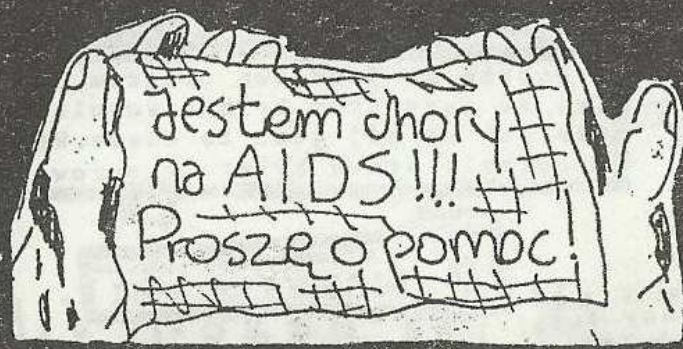 Jestem chory
na AIDS!!!
Proszę o pomoc!